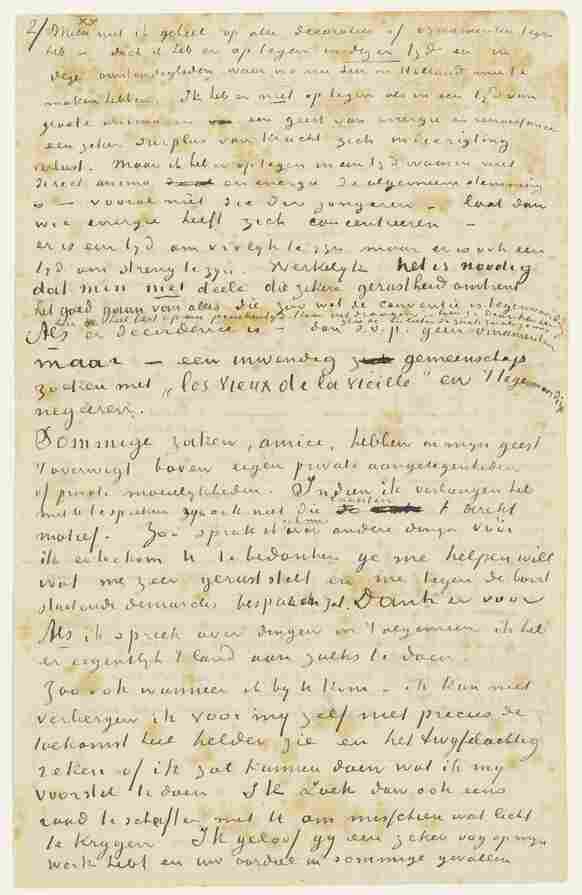 2/
Denk niet ik geheel op alle decoratie of ornamenten tegen
heb – doch ik heb er op tegen in dezen tijd en in
deze omstandigheden waar we nu hier in Holland mee te
maken hebben. Ik heb er niet op tegen als in een tijd van
groote animo en een geest van energie en renaissance
een zeker surplus van kracht zich in
verlust. Maar ik heb er op tegen in een tijd waarin niet
direct animo en energie de algemeene stemming
is – vooral niet die der jongeren – laat dan
wie energie heeft zich concentreeren –
er is een tijd om vrolyk te zyn maar er is ook een
tyd om streng te zyn. Werkelyk het is noodig
dat men niet deele die zekere gerustheid omtrent
het goed gaan van alles die
Als er decadence is – dan s.v.p. geen ornamenten
maar – een inwendig gemeenschap
zoeken met „les vieux de la vieille” en 't tegenwoordige
negeeren.
Sommige zaken, amice, hebben in myn geest
't overwigt boven eigen private aangelegenheden
of private moeielykheden. Indien ik verlangen heb
met U te spreken zyn ook niet die 't direkt
motief. Zoo sprak ik over andere dingen vóór
ik er toe kom U te bedanken ge me helpen wilt
wat me zeer geruststelt en me tegen de borst
stootende demarches besparen zal. Dank er voor
Als ik spreek over dingen in 't algemeen ik heb
er eigentlyk 't land aan zulks te doen.
Zoo ook wanneer ik by U kom – ik kan niet
verbergen ik voor my zelf niet precies de
toekomst heel helder zie en het twyfelachtig
reken of ik zal kunnen doen wat ik my
voorstel te doen. Ik zoek dan ook eens
raad te schaffen met U om misschien wat licht
te krygen. Ik geloof gy een zeker oog op myn
werk hebt en uw oordeel in sommige gevallen